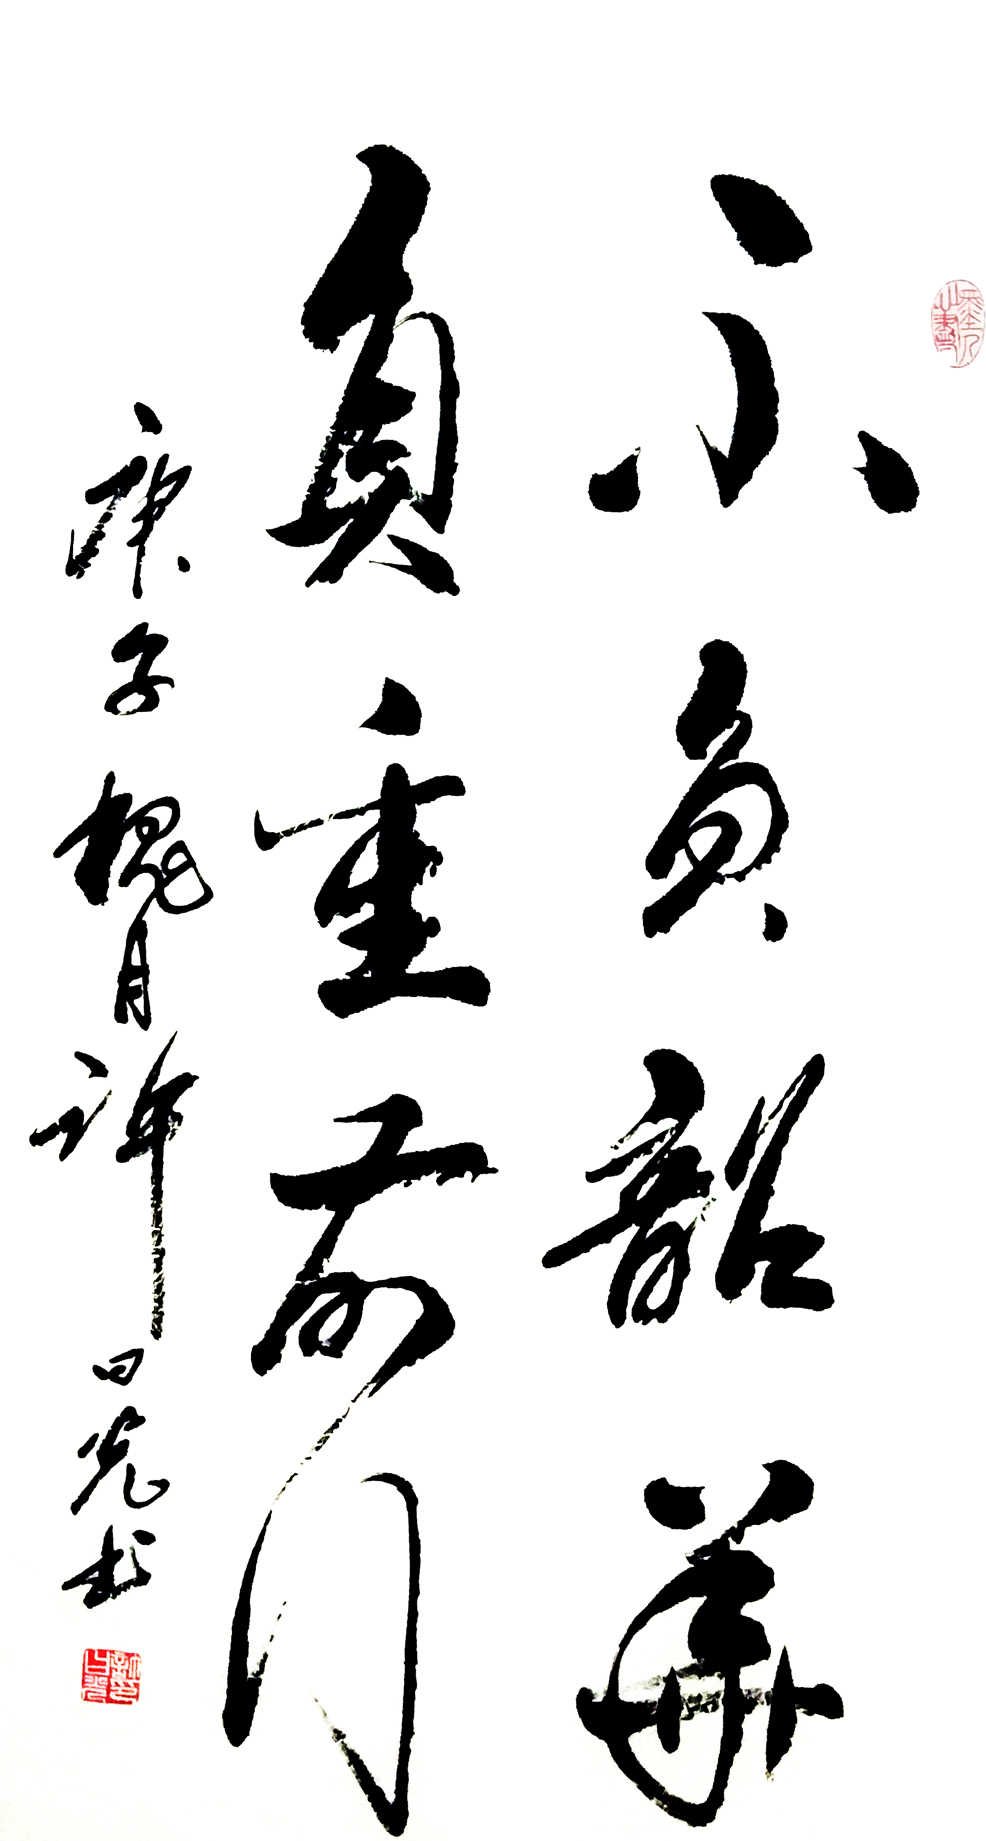 不负韶华
负重前行
庚子槐月许日光书